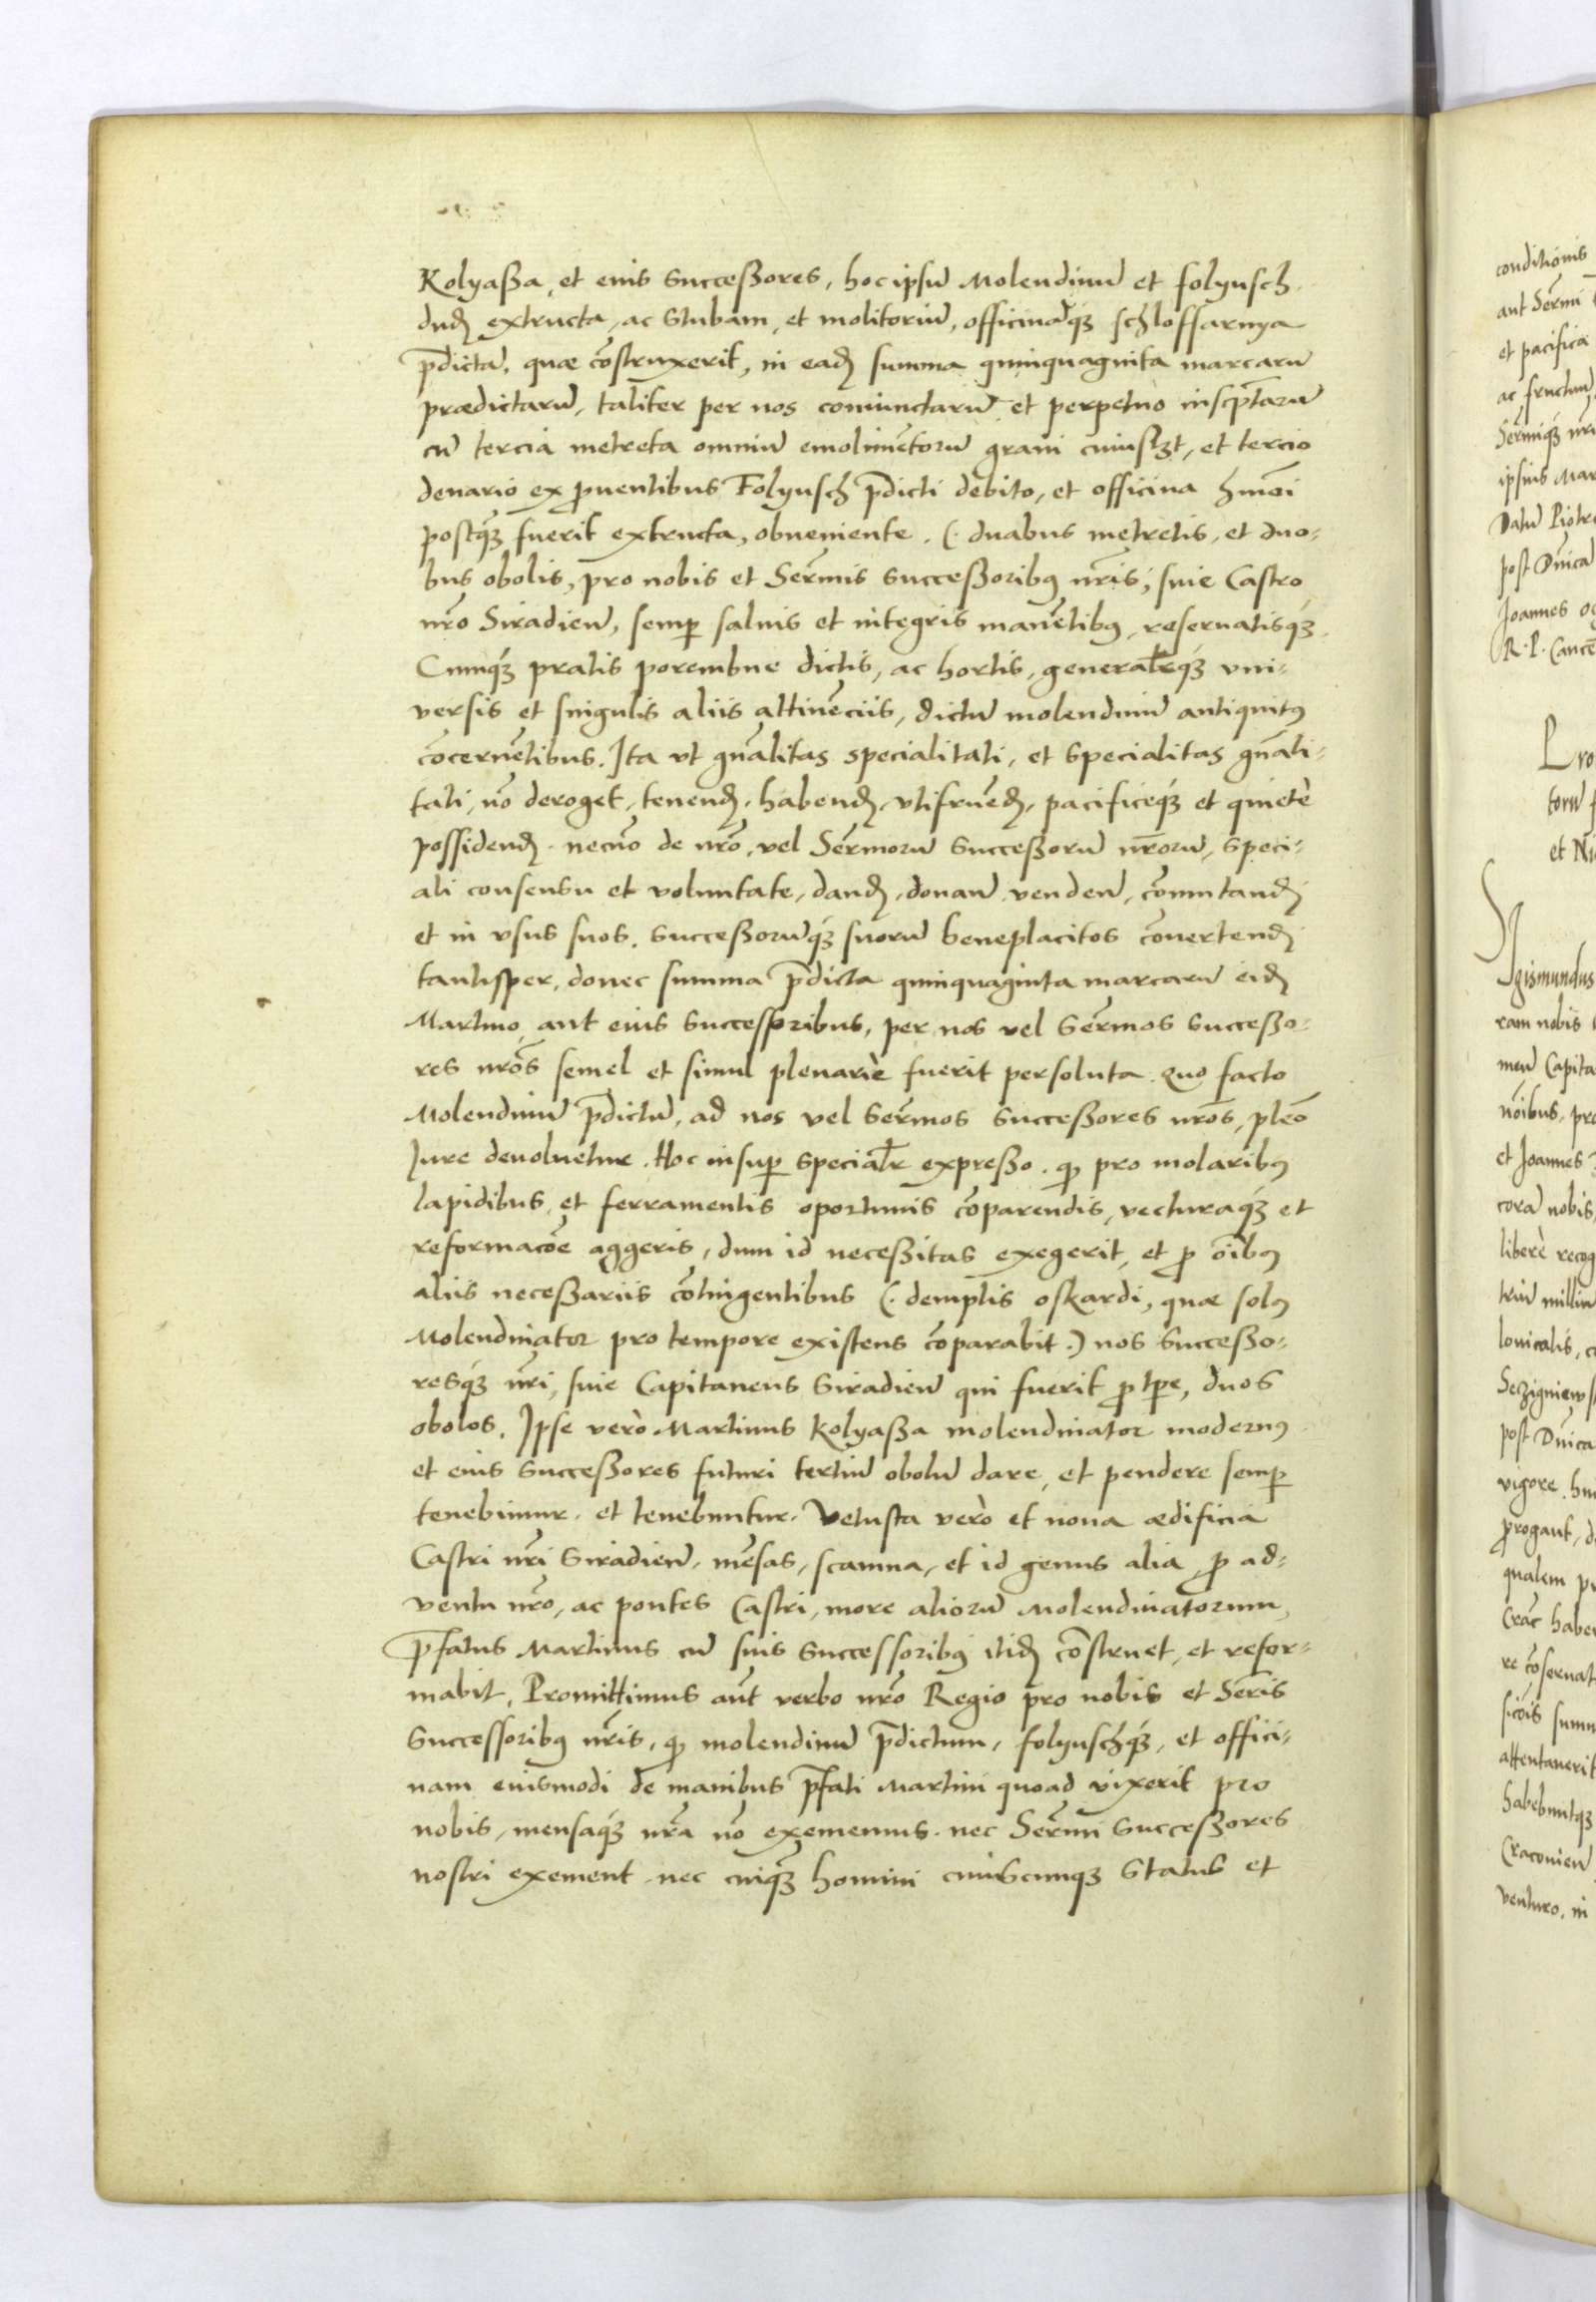 Kolyaßa, et eius Succeßores, hoc ipsũ Molendinũ et folyusch
dudꝫ extructa, ac Stubam, et molitoriũ, officinãqꝫ schloffarnya
p̃dictã, quæ cõstruxerit, in eadꝫ summa quinquaginta marcarũ
prædictarũ, taliter per nos coniunctarũ et perpetuo inscp̃tarũ
cũ tercia metreta omniũ emolimẽtorũ grani cuiuslꝫt, et tercio
denario ex ꝓuentibus Folyusch p̃dicti debito, et officina hmõi
postqꝫ fuerit extructa, obueniente. (. duabus metretis, et duo-
bus obolis, pro nobis et Serm̃is Succeßoribꝯ nr̃is, siue Castro
nr̃o Siradieñ, semꝑ saluis et integris manẽtibꝯ, reseruatisqꝫ
Cumqꝫ pratis porembne dictis, ac hortis, generalr̃qꝫ vni-
versis et singulis aliis attinẽciis, dictũ molendinũ antiquitꝯ
cõcernẽtibus. Ita vt gñalitas specialitati, et Specialitas gñali-
tati, nõ deroget, tenendꝫ, habendꝫ, vtifruẽdꝫ, pacificeqꝫ et quietè
possidendꝫ. necnõ de nr̃o, vel Serm̃orũ Succeßorũ nr̃orũ, Speci-
ali consensu et voluntate, dandꝫ, donañ, vendeñ, cõmutandꝫ
et in vsus suos, Succeßorũqꝫ suorũ beneplacitos cõuertendꝫ
tantisper, donec summa p̃dicta quinquaginta marcarũ eidꝫ
Martino, aut eius Successoribus, per nos vel Serm̃os Succeßo-
res nr̃os semel et simul plenariè fuerit persoluta. Quo facto
Molendinũ p̃dictũ, ad nos vel Serm̃os Succeßores nr̃os, pleõ
Iure deuoluetur. Hoc insuꝑ Specialr̃ expreßo. qꝫ pro molaribꝯ
lapidibus, et ferramentis oportunis cõparendis, vecturaqꝫ et
reformacõe aggeris, dum id neceßitas exegerit, et ꝓ oĩbꝯ
aliis neceßariis cõtingentibus (. demptis oskardi, quæ solꝯ
Molendinator pro tempore existens cõparabit .) nos Succeßo-
resqꝫ nr̃i, siue Capitaneus Siradieñ qui fuerit ꝓ tp̃e, duos
obolos. Ipse verò Martinus Kolyaßa molendinator modernꝯ
et eius Succeßores futuri tertiũ obolũ dare, et pendere semꝑ
tenebimur, et tenebuntur. Vetusta verò et noua ædificia
Castri nr̃i Siradieñ, mẽsas, scamna, et id genus alia ꝓ ad-
ventu nr̃o, ac pontes Castri, more aliorũ Molendinatorum,
p̃fatus Martinus cũ suis Successoribꝯ itidꝫ cõstruet, et refor-
mabit. Promittimus aũt verbo nr̃o Regio pro nobis et Serr̃is
Successoribꝯ nr̃is, qꝫ molendinũ p̃dictum, folyuschqꝫ, et offici-
nam eiusmodi de manibus p̃fati Martini quoad vixerit pro
nobis, mensaqꝫ nr̃a nõ exememus. nec Serm̃i Succeßores
nostri exement. nec cuiqꝫ homini cuiuscunqꝫ Status et
conditionis
aut Serm̃i
et pacifica
ac fructuũ
Serm̃iqꝫ nr̃i
ipsius Mar
Datũ Piotr
post Dñica
Joannes
R. P. Canc
Pro
torũ
et Ni
Sigismundus
ram nobis
meñ Capita
nõibus, pro
et Joannes
corã nobis
liberè recog
triũ milliũ
lonicalis,
post Dñica
vigore.
ꝓrogaut,
qualem
Crac̃ habe
re cõseruat
sicõis sum
attentauerit
habebuntqꝫ
Cracouieñ
venturo, in